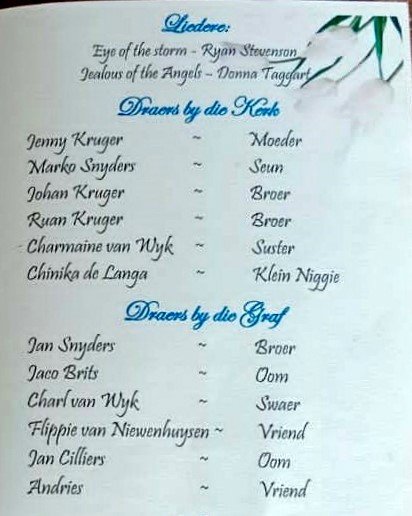 Liedere:
Eye of the storm - Ryan Stevenson
Jealous of the Angels - Donna Taggart
Draers by die Kerk
Jenny Kruger ~ Moeder
Marko Snyders ~ Seun
Johan Kruger ~ Broer
Ruan Kruger ~ Broer
Charmaine van Wyk ~ Suster
Chinika de Langa ~ Klein Niggie
Draers by die Graf
Jan Snyders ~ Broer
Jaco Brits ~ Oom
Charl van Wyk ~ Swaer
Flippie van Niewenhuysen ~ Vriend
Jan Cilliers ~ Oom
Andries ~ Vriend